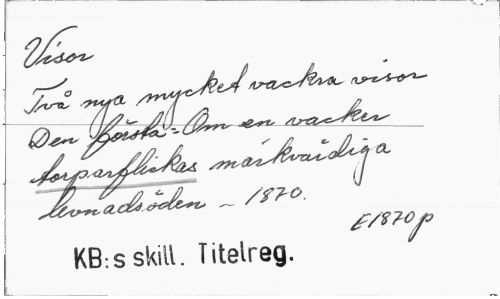 Visor
Två nya mycket vackra visor
Den första = Om en vacker
torparflickas märkvärdiga
levnadsöden – 1870.
E1870p
KB:s skill. Titelreg.